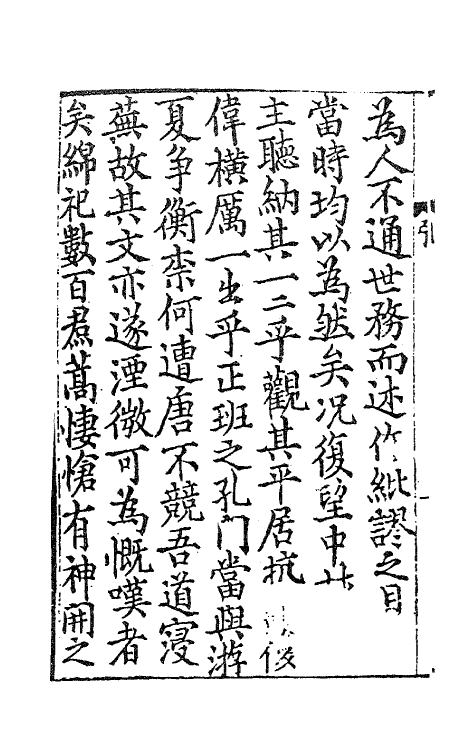 引
為人不通世務而述作紕謬之目
當時均以為然矣况復望中
主聽納其一二乎觀其平居抗俊
偉橫厲一出乎正班之孔門當與游
夏争衡柰何遭唐不競吾道寖
蕪故其文亦遂湮微可為慨嘆者
矣綿祀數百焄蒿悽愴有神開之